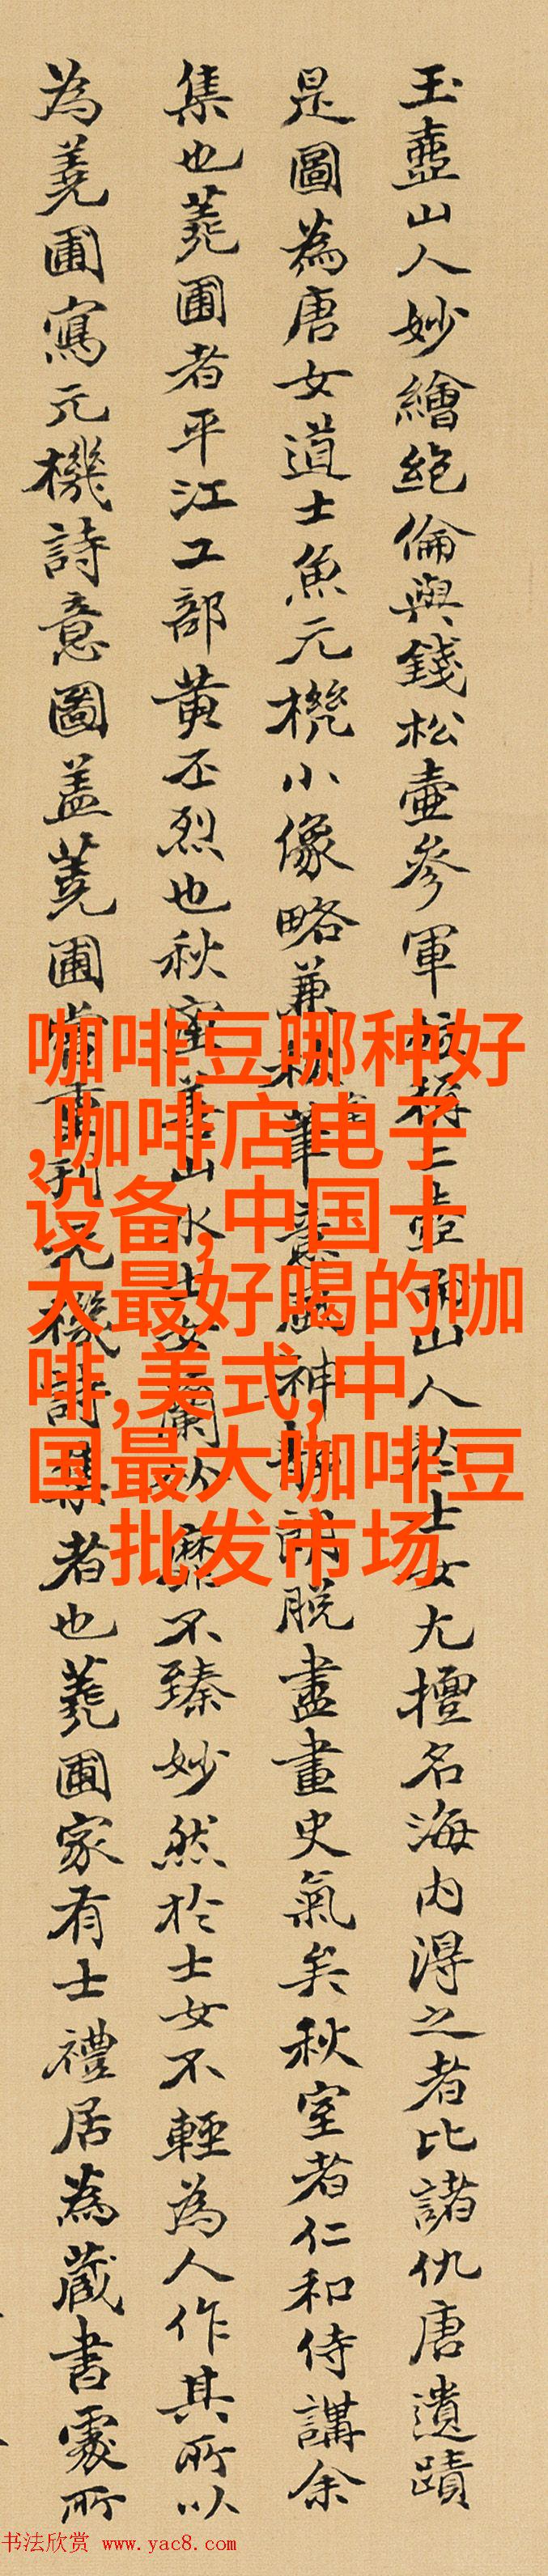 玉壺山人妙繪絕倫與錢松壺參軍並稱二壺而山人於士女尤擅名海內得之者比諸仇唐遺蹟
是圖為唐女道士魚元機小像略兼秋筆意神靜韻脫盡畫史氣矣秋室者仁和侍講余
集也蕘圃者平江工部黃丕烈也秋室善山水士女蘭竹靡不臻妙然於士女不輕為人作其所以
為蕘圃寫元機詩意圖蓋蕘圃嘗重刊元機詩集者也蕘圃家有士禮居為藏書處所
咖啡豆哪种好
,咖啡店电子
设备,中国十
大最好喝的咖
啡,美式,中
国最大咖啡豆
批发市场
书法欣赏 www.yac8.com